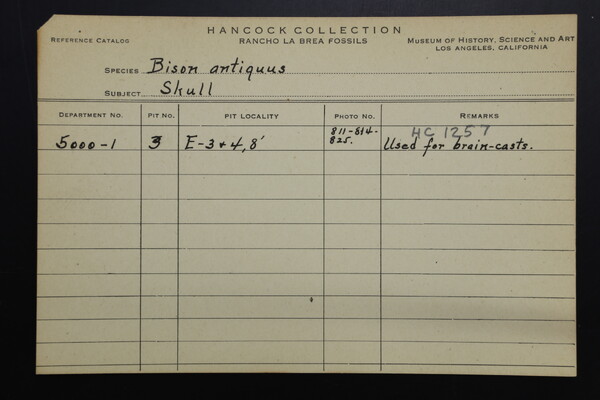 HANCOCK COLLECTION
REFERENCE CATALOG RANCHO LA BREA FOSSILS MUSEUM OF HISTORY, SCIENCE AND ART
LOS ANGELES, CALIFORNIA
SPECIES Bison antiquus
SUBJECT Skull
DEPARTMENT NO. PIT NO. PIT LOCALITY PHOTO NO. REMARKS
HC 1257
5000-1 3 E-3+4, 8' 811-814-825. Used for brain-casts.